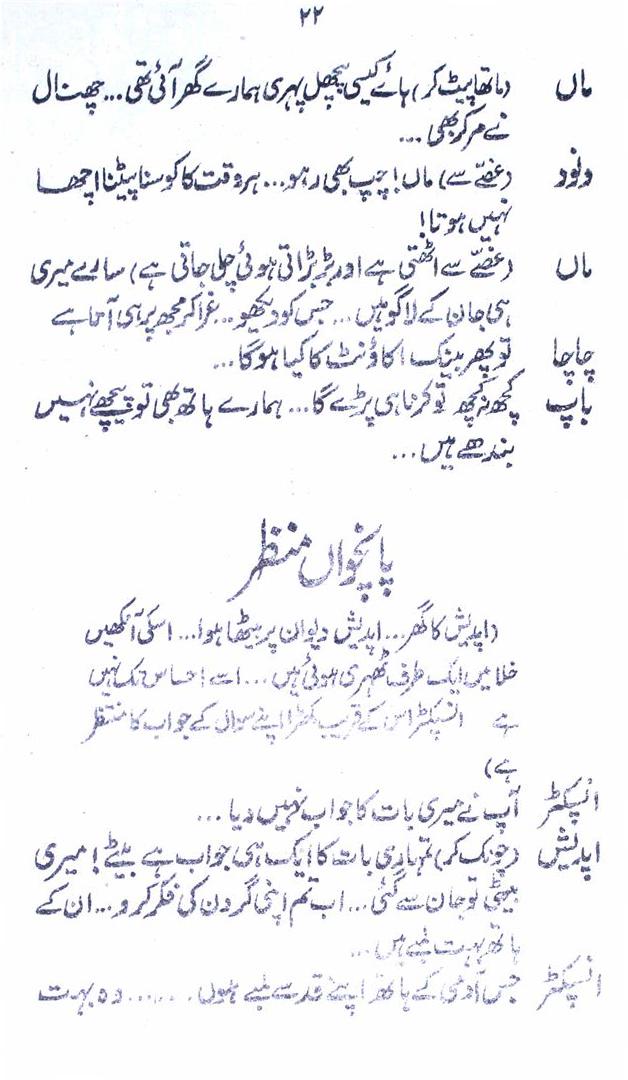 ۲۲
ماں (ماتھا پیٹ کر) ہائے کیسی پچھل پہری ہمارے گھر آئی تھی... چھنال
نے مر کر بھی ...
ونود (غصّے سے) ماں! چپ بھی رہو... ہر وقت کا کوسنا پیٹنا اچھا
نہیں ہوتا!
ماں (غصّے سے اٹھتی ہے اور بڑبڑاتی ہوئی چلی جاتی ہے) سالے میری
ہی جان کے لاگو ہیں... جس کو دیکھو... غرا کر مجھ پر ہی آتا ہے
چاچا تو پھر بینک اکاؤنٹ کا کیا ہوگا...
باپ کچھ نہ کچھ تو کرنا ہی پڑے گا... ہمارے ہاتھ بھی تو پیچھے نہیں
بندھے ہیں...
پانچواں منظر
(اپدیش کا گھر... اپدیش دیوان پر بیٹھا ہوا... اسکی آنکھیں
خلا میں ایک طرف ٹھہری ہوئی ہیں... اسے احساس تک نہیں
ہے انسپکٹر اس کے قریب کھڑا اپنے سوال کے جواب کا منتظر
ہے)
انسپکٹر آپ نے میری بات کا جواب نہیں دیا...
اپدیش (چونک کر) تمہاری بات کا ایک ہی جواب ہے بیٹے! میری
بیٹی تو جان سے گئی... اب تم اپنی گردن کی فکر کرو... ان کے
ہاتھ بہت لمبے ہیں...
انسپکٹر جس آدمی کے ہاتھ اپنے قد سے لمبے ہوں...... وہ بہت